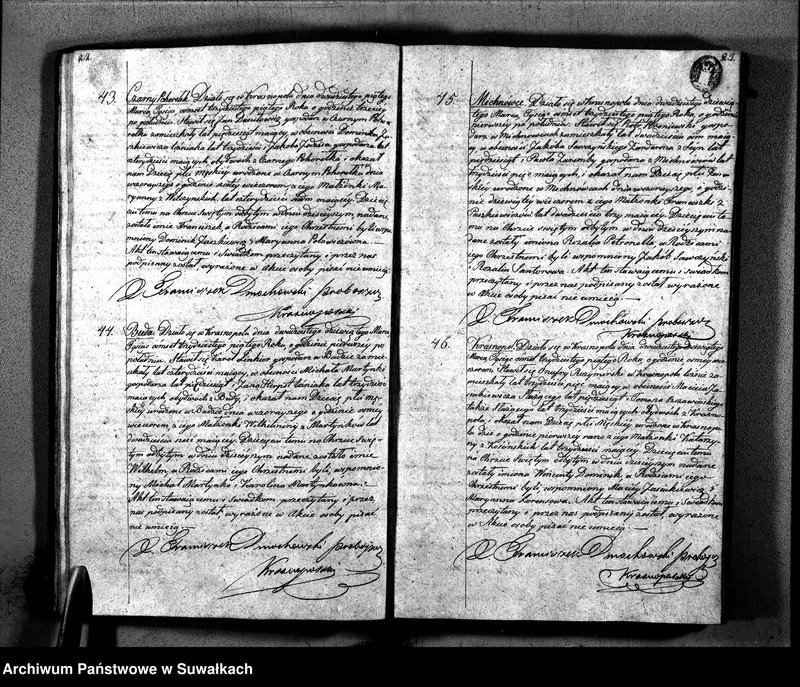 22.
43. Czarny Pokoratek. Działo się w Krasnopolu dnia dwudziestego piątego
Marca tysiąc osmset trzydziestego piątego Roku o godzinie trzeciej
po południu. Stawił się Jan gospodarz w Czarnym Poko-
ratku zamieszkały lat pięćdziesiąt maiący, w obecności Dominika Ja-
lat trzydzieści i Jakuba gospodarza lat
czterdzieści maiących, obydwóch z Czarnego Pokoratka, i okazał
nam Dziecię płci męskiey urodzone w Czarnym Pokoratku dnia
wczorayszego o godzinie szóstey wieczorem z iego Małżonki Ma-
ryanny z lat czterdzieści maiącey. Dziecię-
ciu temu na Chrzcie Swiętym odbytym w dniu dzisieyszym nadane
zostało imie Franciszek, a Rodzicami iego Chrzestnemi byli wspo-
mniony Dominik i Maryanna
Akt ten stawaiącemu i świadkom przeczytany i przez nas
podpisany został, wyrażone w Akcie osoby pisać nieumieią.
X Franciszek Dmochowski proboszcz
Krasnopolski
44. Buda. Działo się w Krasnopolu dnia dwudziestego dziewiątego Marca
tysiąc osmset trzydziestego piątego Roku, o godzinie pierwszey po
południu. Stawił się Karol gospodarz w Budzie zamie-
szkały lat czterdzieści maiący, w obecności Michała Martynki
gospodarza lat pięćdziesiąt i Jana lat trzydzieści
maiących, obydwóch z Budy, i okazał nam Dziecię płci mę-
skiey urodzone w Budzie dnia wczorayszego o godzinie osmey
wieczorem z iego Małżonki Wilhelminy z Martynków lat
dwadzieścia sześć maiącey. Dziecięciu temu na Chrzcie Swię-
tym odbytym w dniu dzisieyszym nadane zostało imie
Wilhelm, a Rodzicami iego Chrzestnemi byli, wspomnio-
ny Michał Martynka i Karolina Martynkowna.
Akt ten stawaiącemu i świadkom przeczytany i przez
nas podpisany został wyrażone w Akcie osoby pisać
nie umieią.
X Franciszek Dmochowski proboszcz
Krasnopolski
23.
45. Michnowce. Działo się w Krasnopolu dnia dwudziestego dziewią-
tego Marca, tysiąc osmset trzydziestego piątego Roku, o godzinie
pierwszey po południu. Stawił się gospo-
darz w Michnowcach zamieszkały lat dwadzieścia osm maią-
cy, w obecności Jakuba z Sejn lat
pięćdziesiąt i Pawła gospodarza z Michnowców lat
trzydzieści pięć maiących, i okazał nam Dziecię płci Żeń-
skiey urodzone w Michnowcach dnia wczorayszego, o godzi-
nie dziewiątey wieczorem z iego Małżonki Franciszki z
lat dwadzieścia trzy maiącey. Dziecięciu te-
mu na Chrzcie Swiętym odbytym w dniu dzisieyszym na-
dane zostały imiona Rozalia Petronella, a Rodzicami
iego Chrzestnemi byli wspomniony Jakub
i Rozalia. Akt ten stawaiącemu i świadkom
przeczytany i przez nas podpisany został wyrażone
w Akcie osoby pisać nie umieią.
X Franciszek Dmochowski proboszcz
Krasnopolski
46. Krasnopol. Działo się w Krasnopolu dnia dwudziestego dziewiątego
Marca tysiąc osmset trzydziestego piątego Roku, o godzinie osmey wie-
czorem. Stawił się Onufry w Krasnopolu za-
mieszkały lat trzydzieści pięć maiący w obecności Macieia
lat pięćdziesiąt i Tomasza
także lat trzydzieści maiących obydwóch z Krasno-
pola, i okazał nam Dziecię płci Męskiey urodzone w Krasnopo-
lu dziś o godzinie pierwszey rano z iego Małżonki Katarzy-
ny z lat trzydzieści maiącey. Dziecięciu temu
na Chrzcie Swiętym odbytym w dniu dzisieyszym nadane
zostały imiona Wincenty Dominik, a Rodzicami iego
Chrzestnemi byli, wspomniony Maciey i
Maryanna. Akt ten stawaiącemu i świadkom
przeczytany i przez nas podpisany został, wyrażone
w Akcie osoby pisać nie umieią.
X Franciszek Dmochowski proboszcz
Krasnopolski
Archiwum Państwowe w Suwałkach